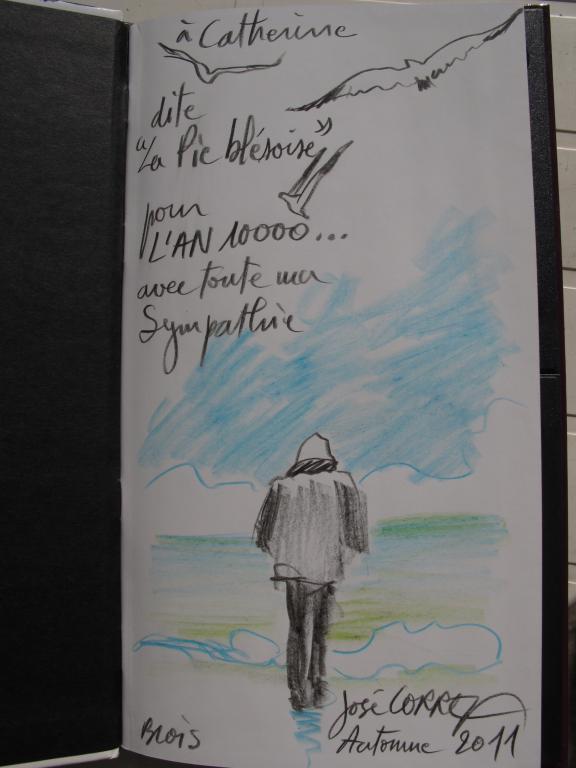 à Catherine
dite
"La Pie blésoise"
pour
L'AN 10000...
avec toute ma
Sympathie
José CORREA
Blois
Automne 2011